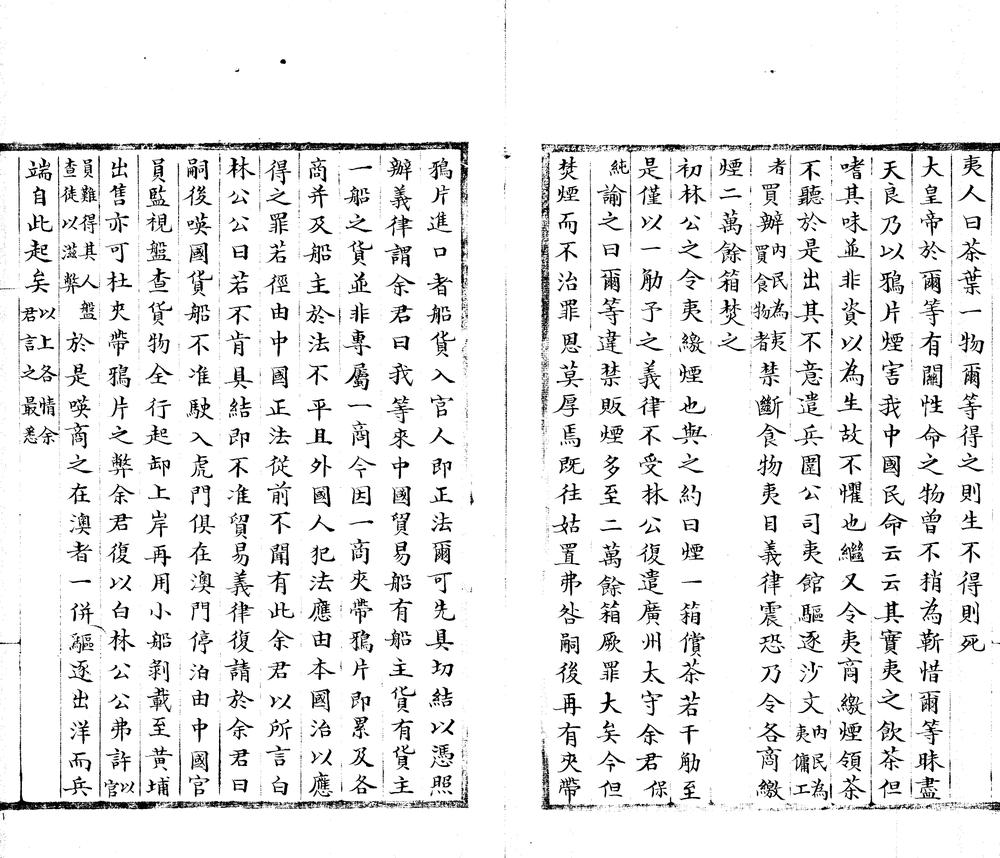 夷人曰茶葉一物爾等得之則生不得則死
大皇帝於爾等有關性命之物曾不稍為靳惜爾等昧盡
天良乃以鴉片煙害我中國民命云云其實夷之飲茶但
嗜其味並非資以為生故不懼也繼又令夷商繳煙領茶
不聽於是出其不意遣兵圍公司夷館驅逐沙文內民為夷傭工
者買辦內民為夷買食物者禁斷食物夷目義律震恐乃令各商繳
煙二萬餘箱焚之
初林公之令夷繳煙也與之約曰煙一箱償茶若干觔至
是僅以一觔予之義律不受林公復遣廣州太守余君保
純諭之曰爾等違禁販煙多至二萬餘箱厥罪大矣今但
焚煙而不治罪恩莫厚焉既往姑置弗咎嗣後再有夾帶
鴉片進口者船貨入官人即正法爾可先具切結以憑照
辦義律謂余君曰我等來中國貿易船有船主貨有貨主
一船之貨並非專屬一商今因一商夾帶鴉片即累及各
商并及船主於法不平且外國人犯法應由本國治以應
得之罪若徑由中國正法從前不聞有此余君以所言白
林公公曰若不肯具結即不准貿易義律復請於余君曰
嗣後嘆國貨船不准駛入虎門俱在澳門停泊由中國官
員監視盤查貨物全行起卸上岸再用小船剝載至黃埔
出售亦可杜夾帶鴉片之弊余君復以白林公公弗許以官
員難得其人盤查徒以滋弊於是嘆商之在澳者一併驅逐出洋而兵
端自此起矣以上各情余君言之最悉